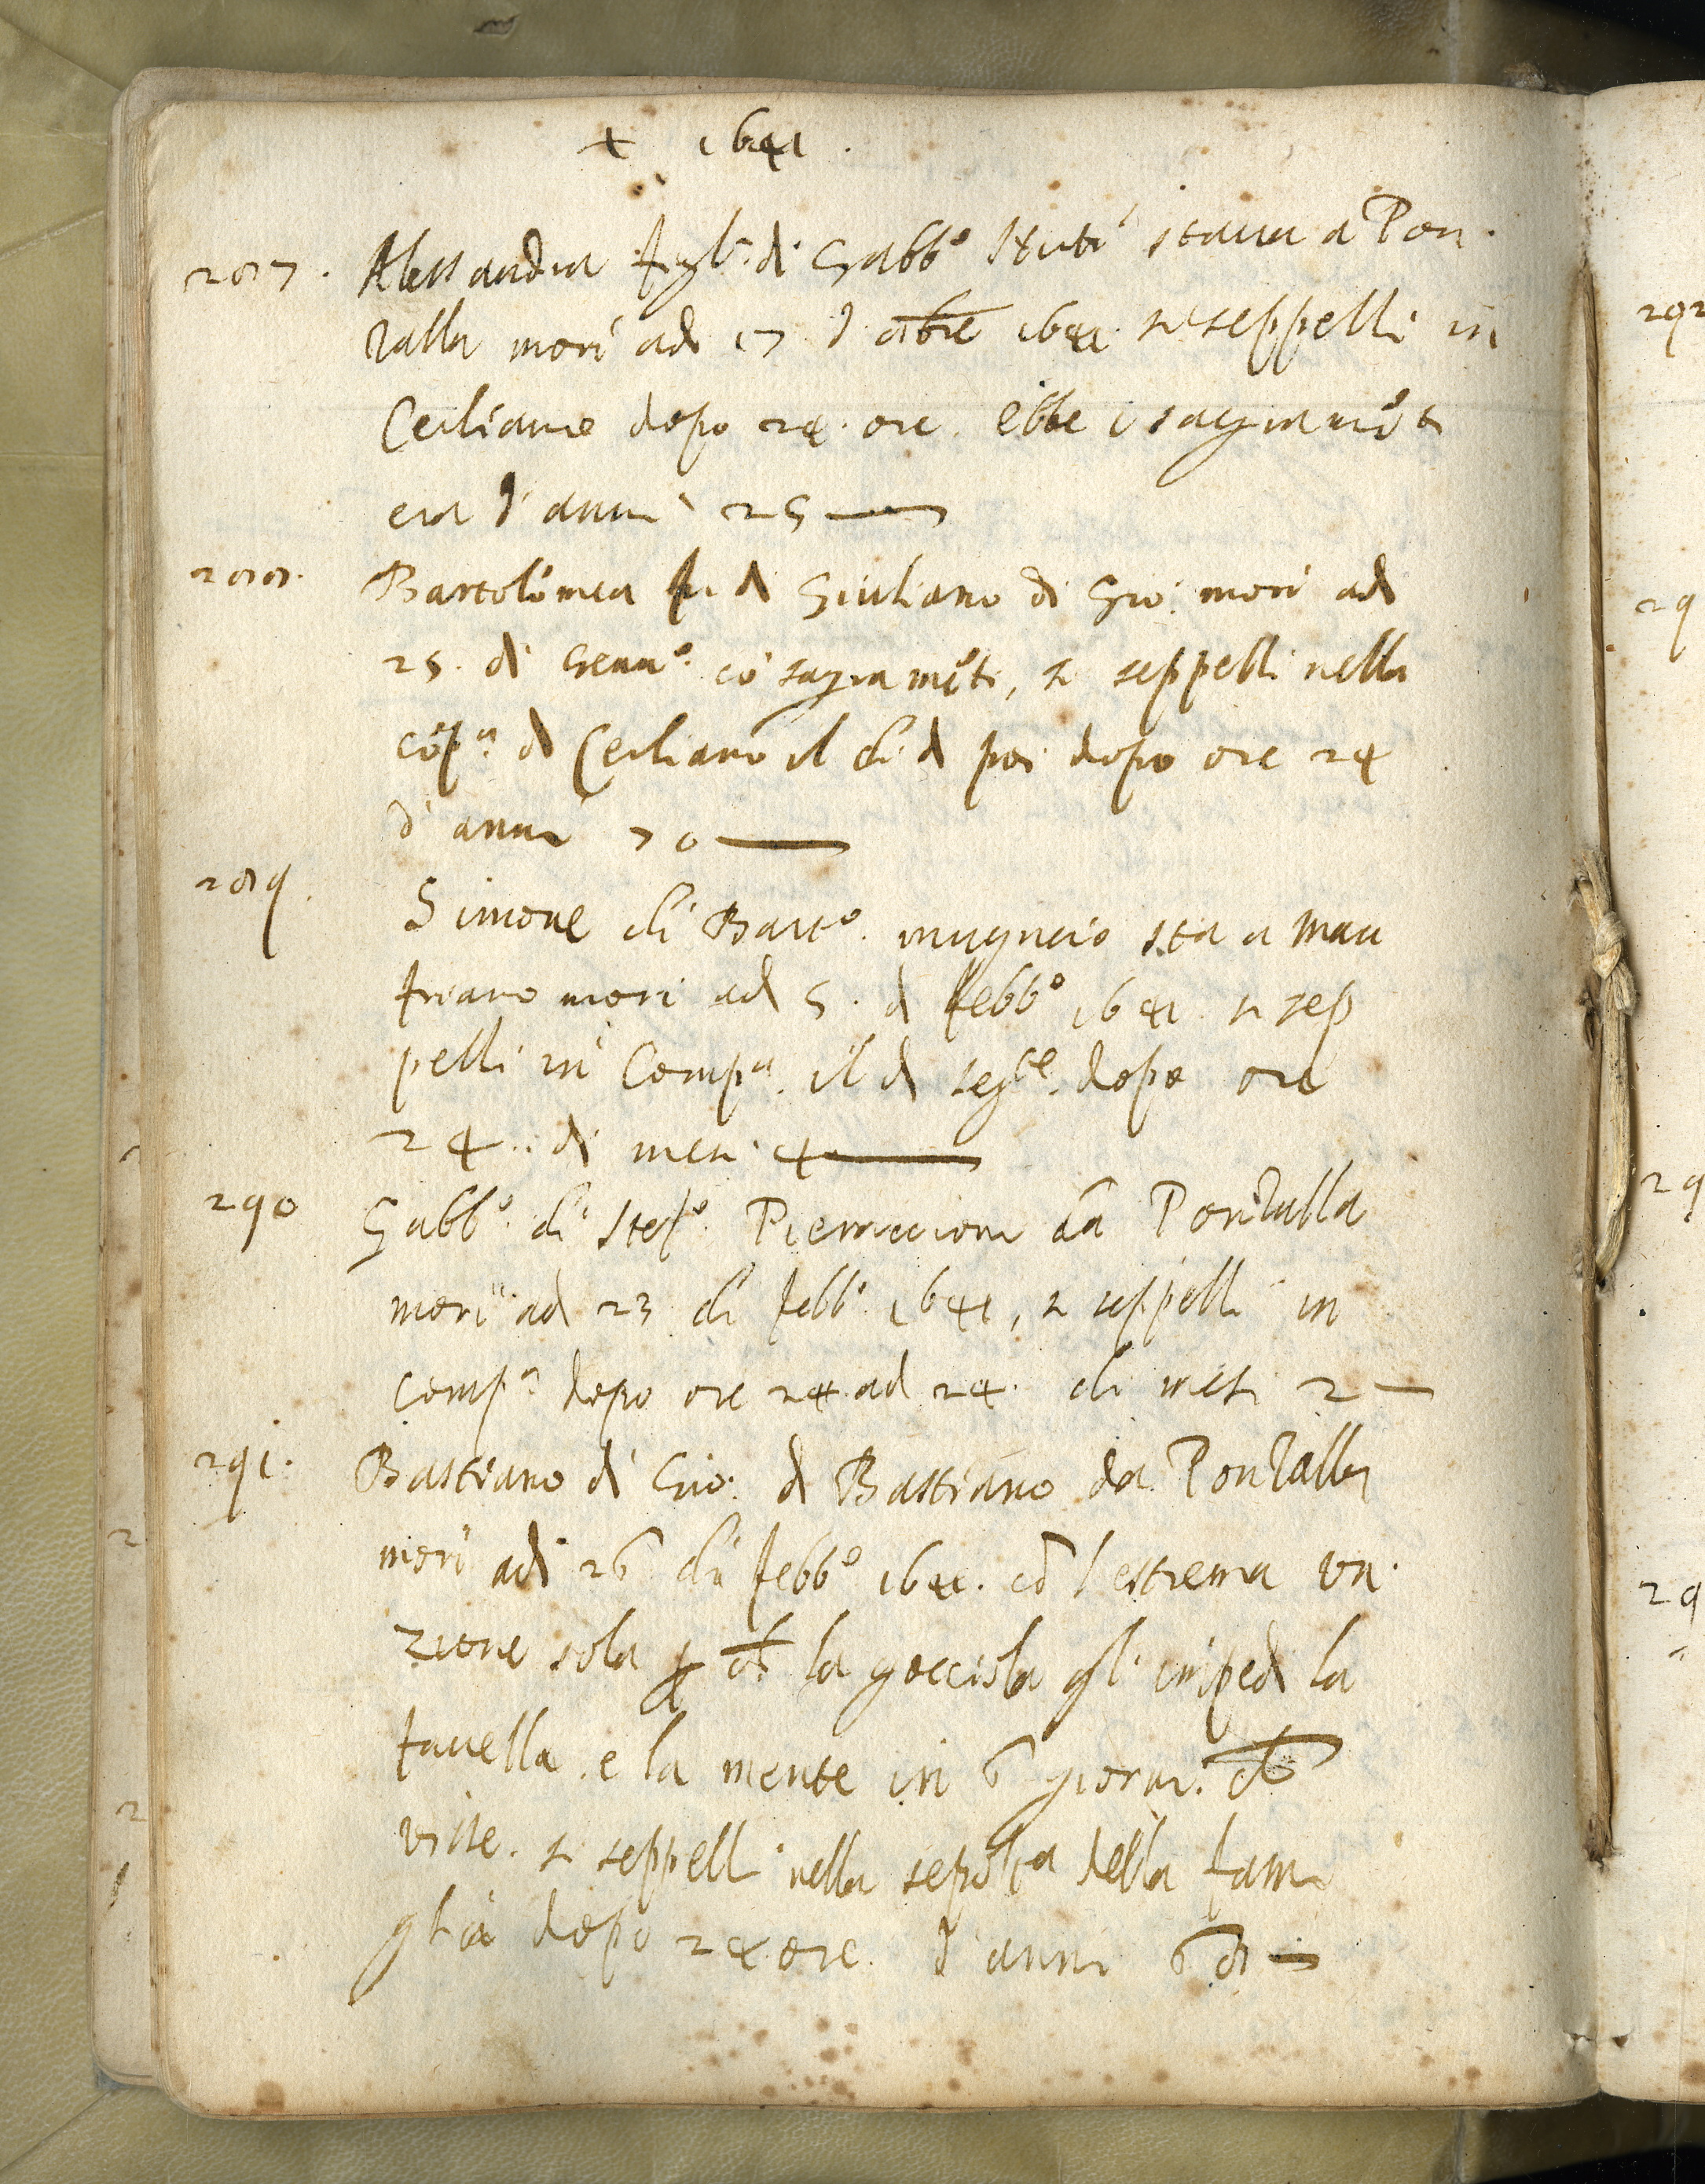 + 1641.
287. Alessandra figl.ª di Gabb.º staua a Pon-
talla morì adi 17 d 8bre 1641. si seppellì in
Ceciliano dopo 24. ore. ebbe i sagramẽti
era d'anni 25
288. Bartolomea di Giuliano di Gio: morì adi
25. di Genn.º cõ sagramẽti, si seppellì nella
cõp.ª di Ceciliano il dì di poi dopo ore 24
d'anni 70
289. Simone di Bart.º mugnaio sta a Man
friano morì adi 5. di febb.º 1641. si sep
pellì in Comp.ª il dì seg.te dopo ore
24.. di mesi 4
290 Gabb.º di Stef.º Pieraccioni da Pontalla
morì adi 23 di febb.º 1641, si seppellì in
comp.ª dopo ore 24 adi 24. di mesi 2
291. Bastiano di Gio: di Bastiano da Pontalla
morì adi 26 di febb.º 1641. cõ l'estrema un-
zione sola p ch̃ la gocciola gl'impedì la
fauella. e la mente in 6 giorni. ch̃
visse. si seppellì nella sepolt.ª della fami
glia dopo 24 ore. d'anni 68
292
29
29
29